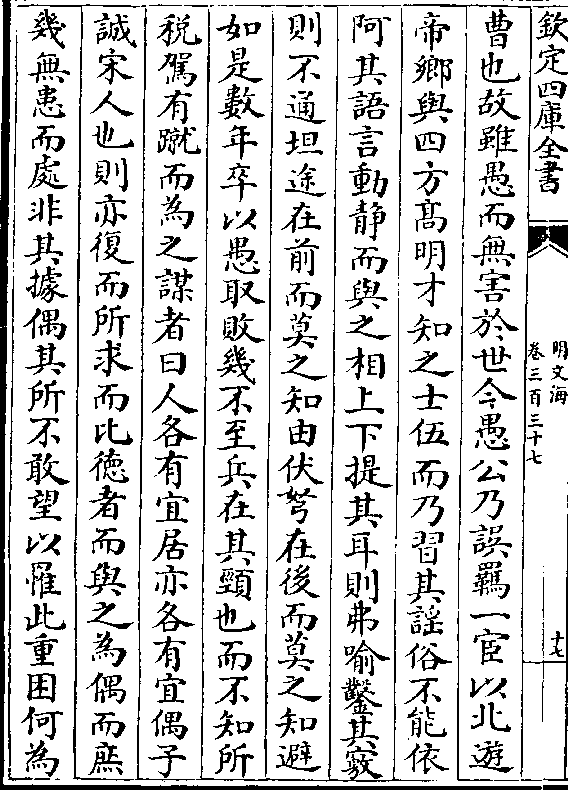 欽定四庫全書
明文海
卷三百三十七
十七
曹也故雖愚而無害於世今愚公乃誤羈一宦以北遊
帝鄉與四方髙明才知之士伍而乃習其謡俗不能依
阿其語言動静而與之相上下提其耳則弗喻鑿其竅
則不通坦途在前而莫之知由伏弩在後而莫之知避
如是數年卒以愚取敗幾不至兵在其頸也而不知所
税駕有蹴而為之謀者曰人各有宜居亦各有宜偶子
誠宋人也則亦復而所求而比徳者而與之為偶而庶
幾無患而處非其據偶其所不敢望以罹此重困何為